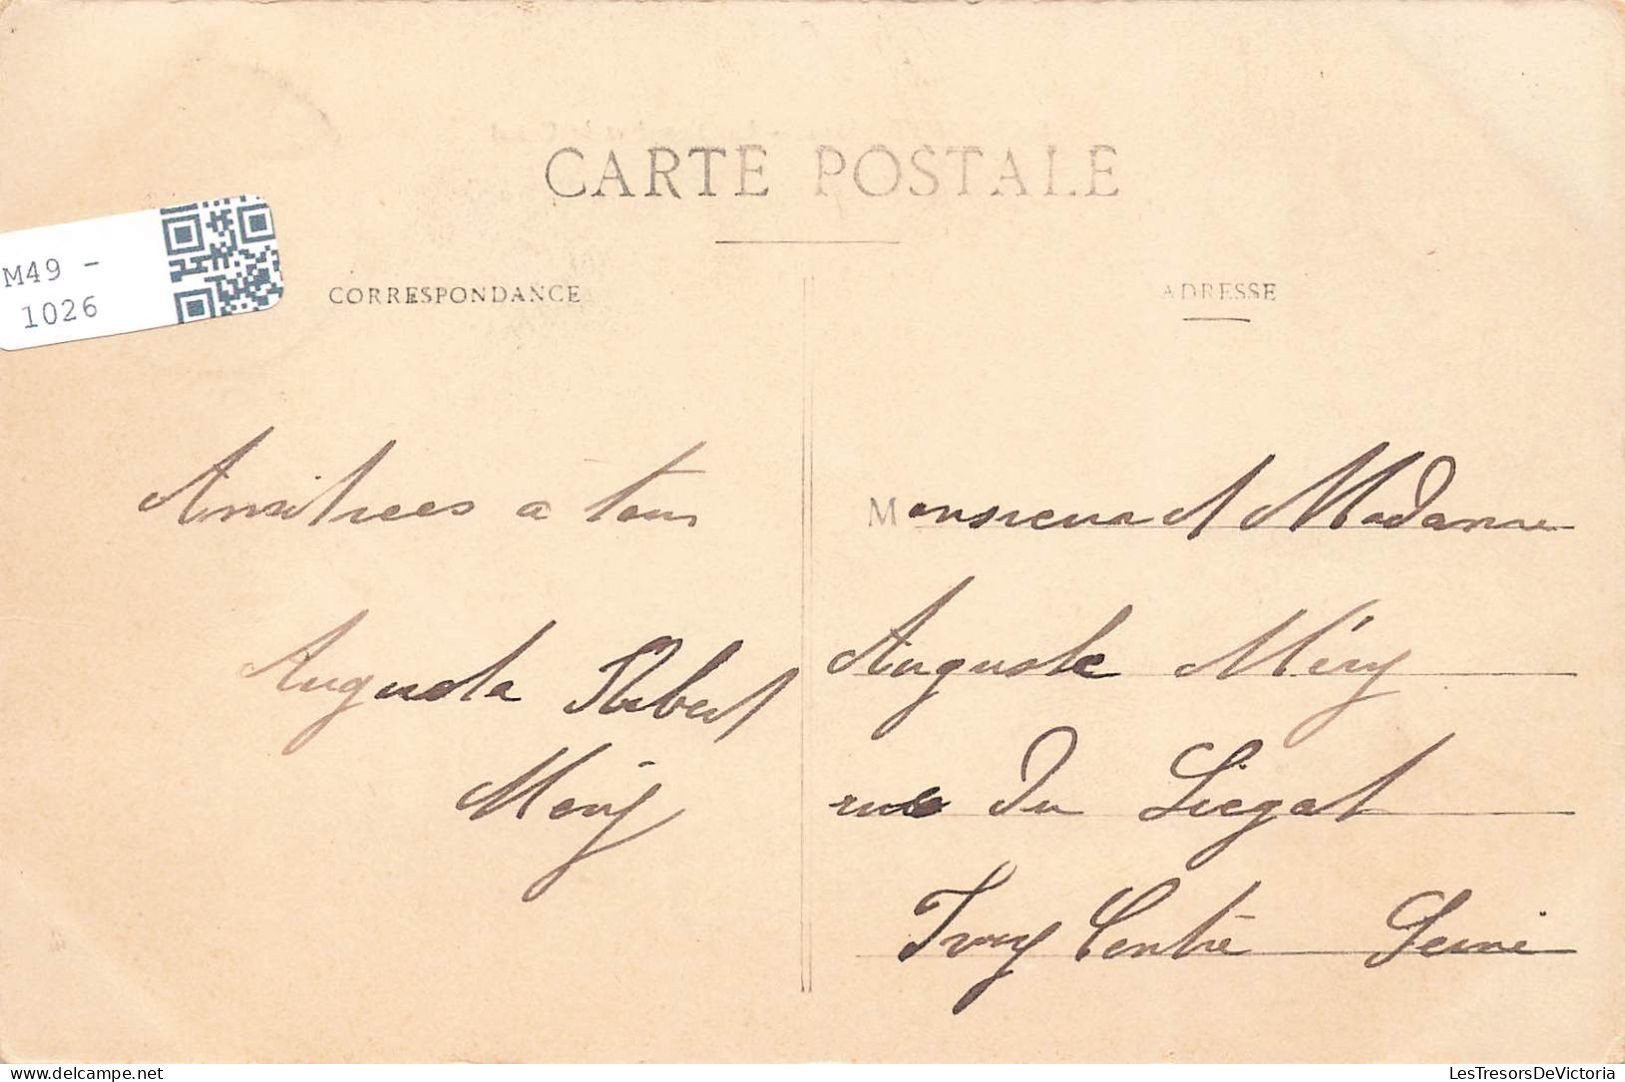 CARTE POSTALE
M49 -
1026
CORRESPONDANCE
ADRESSE
Amitiees a tous
Augusta Hubert
Méry
Monsieur et Madame
Auguste Méry
rue du Liegat
Ivry Centre Seine
LesTresorsDeVictoria
delcampe.net